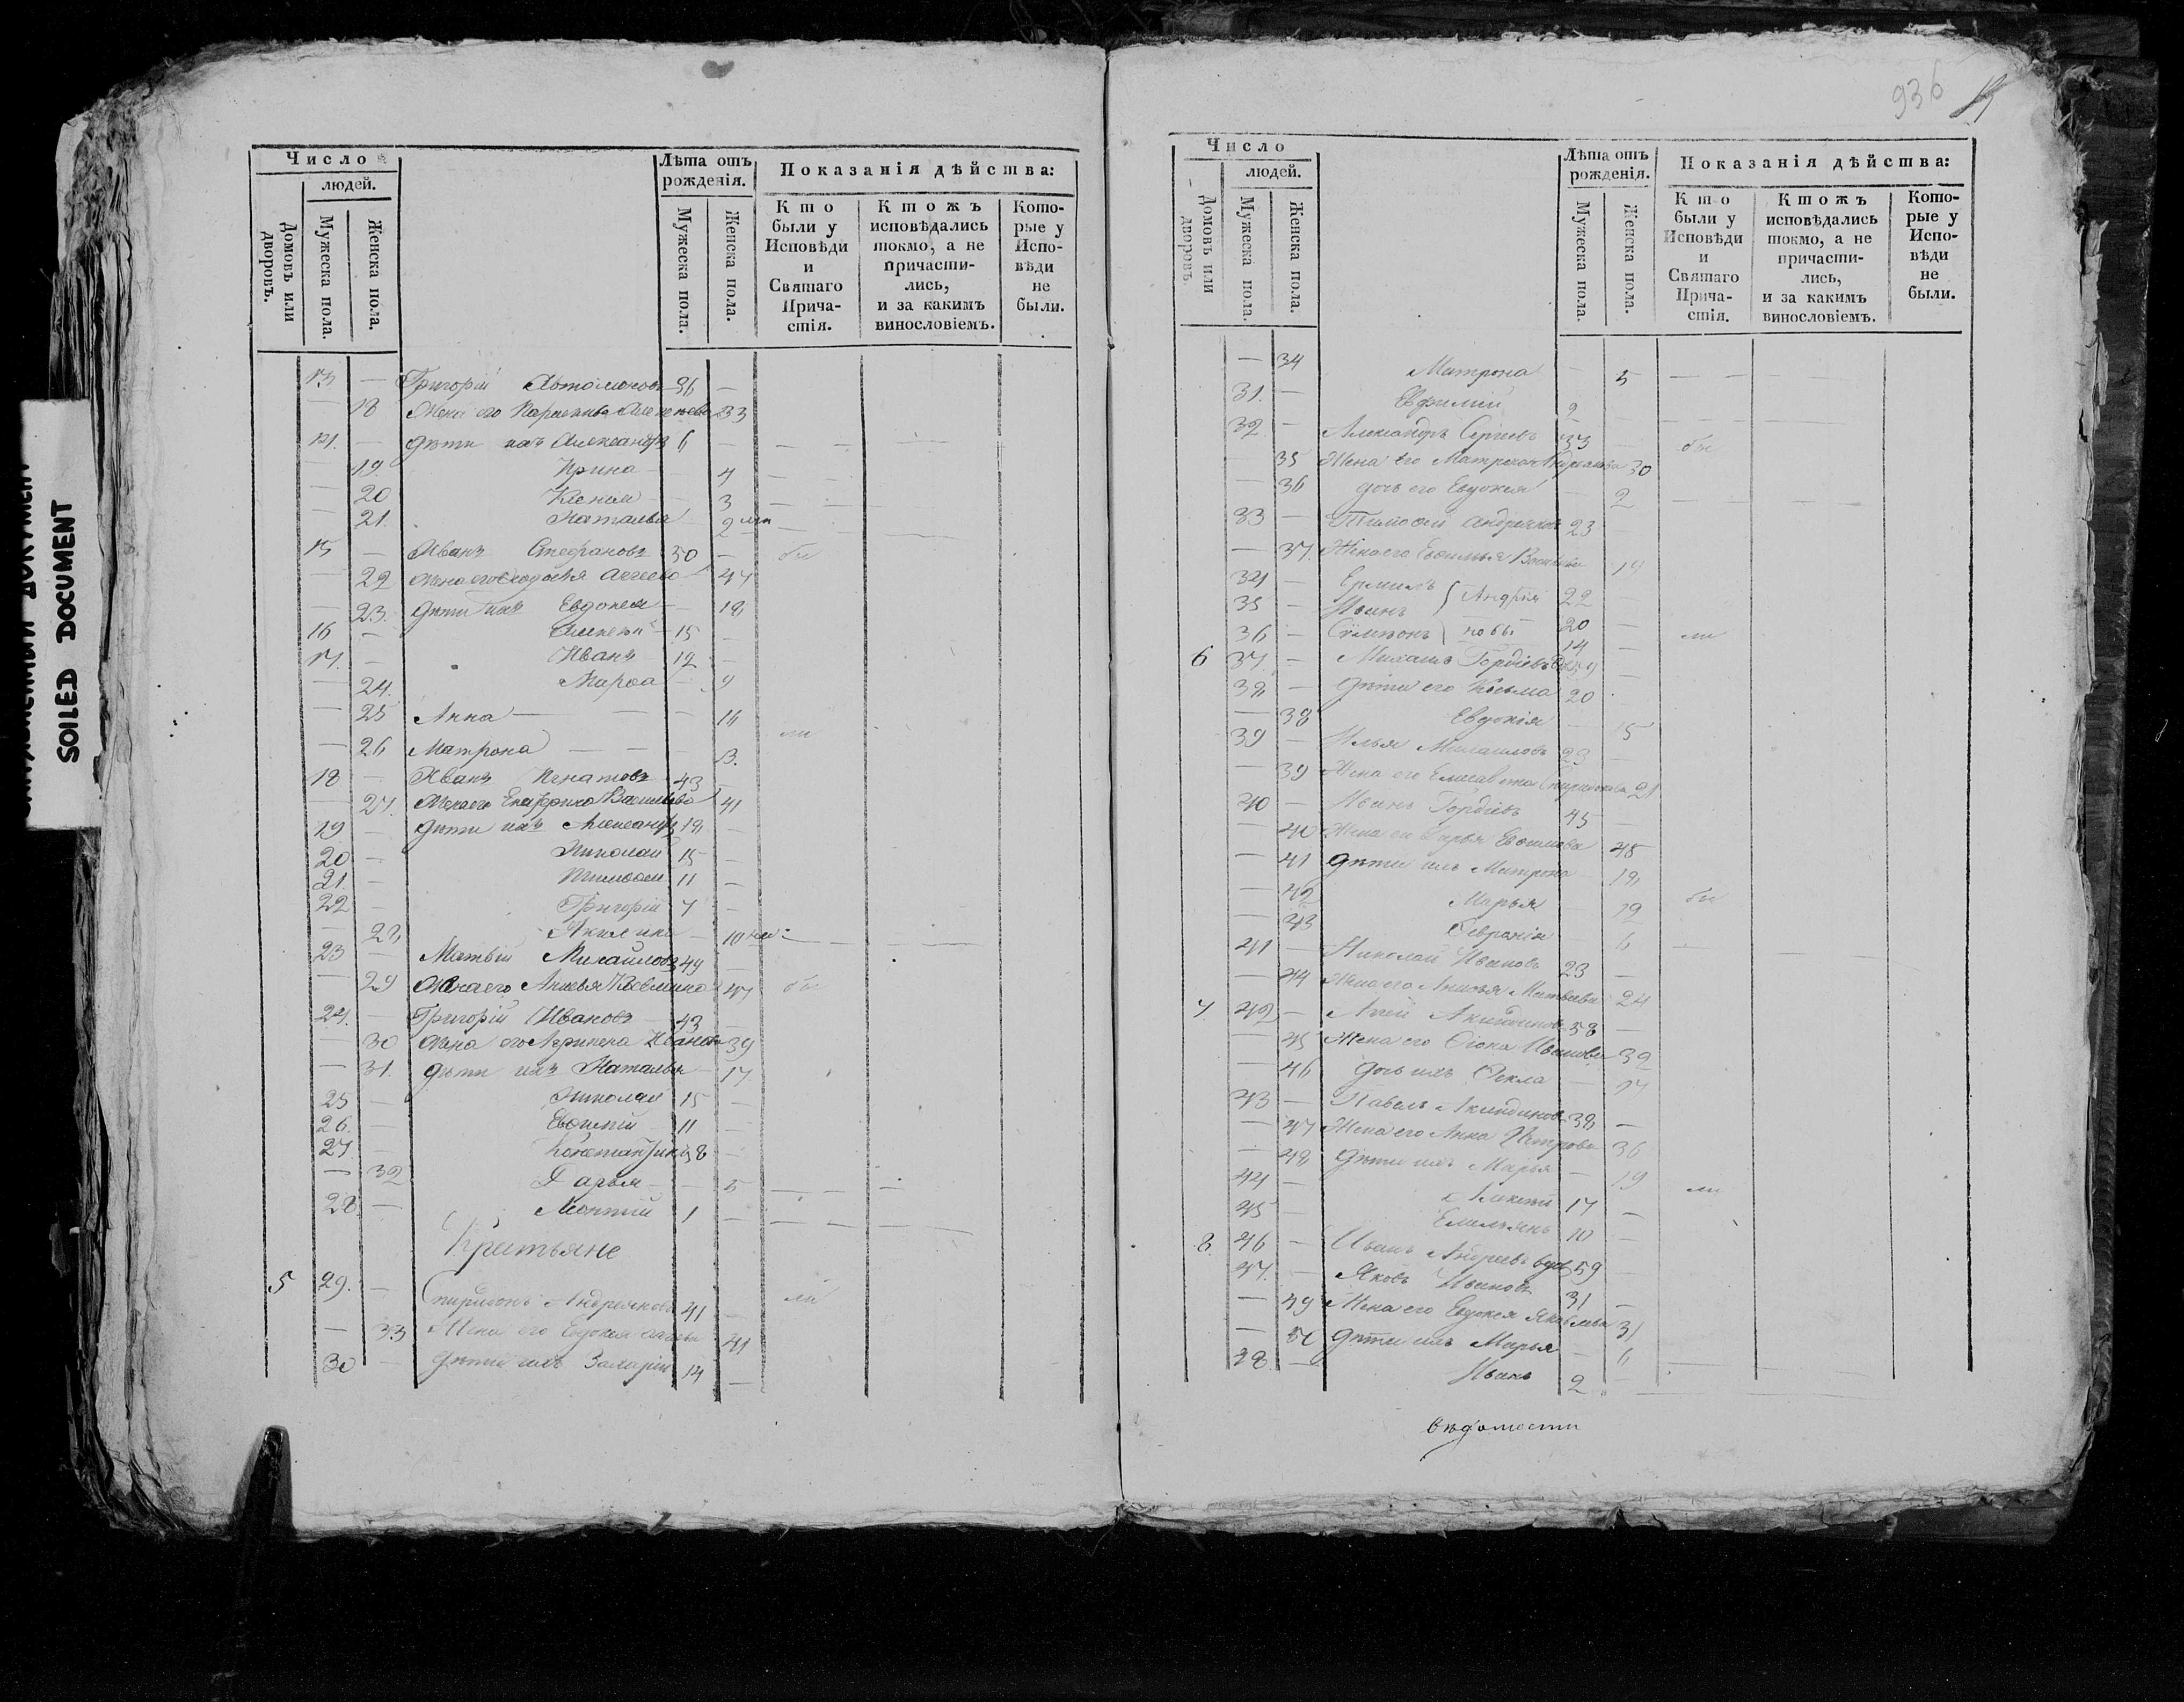 SOILED DOCUMENT
936
Число
людей.
Домовъ или дворовъ.
Мужеска пола.
Женска пола.
Лѣта отъ рожденія.
Мужеска пола.
Женска пола.
Показанія дѣйства:
Кто были у Исповѣди и Святаго Причастія.
Ктожъ исповѣдались токмо, а не причастились, и за какимъ винословіемъ.
Которые у Исповѣди не были.
13 — Григорій Автомоновъ 36 —
— 18 Жена его 33
14 — дѣти ихъ Александръ 6 —
— 19 Ирина — 4
— 20 Ксенія — 3
— 21. Наталья 2
15 — Иванъ Стефановъ 30 — бы
— 22 Жена его Ѳеодосія 47
— 23. дѣти ихъ Евдокея — 18
16 — Алексѣй 15 —
17. — Иванъ 12 —
— 24. Марѳа — 9
— 25 Анна — — — 16
ли
— 26 Матрона — — — 13.
18 — Иванъ Игнатовъ 43
— 27. Жена его Екатерина Васильева 41
19 — дѣти ихъ Александръ 18 —
20 — Николай 15 —
21. — Тимоѳей 11 —
22 — Григорій 7 —
— 28 Акилина — 10
23 — Матвѣй Михайловъ 49 —
— 29 Жена его Анисья Косьмина 47 бы
24. — Григорій Ивановъ 43 —
— 30 Жена его Агрипена Иванова 39
— 31. дѣти ихъ Наталья — 17
25 — Николай 15 —
26. — Евѳимій 11 —
27. — Константинъ 8 —
— 32 Дарья — — 5 — — —
28. — Леонтій 1 — — — —
Крестьяне
5 29. — Спиридонъ Андреяновъ 41 — ли
— 33 Жена его Евдокея 41
30 — дѣти ихъ Захарія 14 —
Число
людей.
Домовъ или дворовъ.
Мужеска пола.
Женска пола.
Лѣта отъ рожденія.
Мужеска пола.
Женска пола.
Показанія дѣйства:
Кто были у Исповѣди и Святаго Причастія.
Ктожъ исповѣдались токмо, а не причастились, и за какимъ винословіемъ.
Которые у Исповѣди не были.
— 34 Матрона — 5 — — —
31. — Евфимій 2 — — —
32 — Александръ Сергѣевъ 33 — бы
— 35 Жена его Матрона 30
— 36 дочь его Евдокея — 2 — —
33 — Тимоѳей Андреяновъ 23 —
— 37. Жена его Евѳимья 19
34 — Ермилъ 22 —
35 — Иванъ Андрея 20 —
36 — Сѵмеонъ новы 14 — ли
6 37. — Михаилъ Гордѣевъ 59 —
38 — дѣти его Косьма 20
— 38 Евдокія — 15
39 — Илья Михаиловъ 23 —
— 39 Жена его Елисавета Спиридонова 21
40 — Иванъ Гордѣевъ 45 —
— 40 Жена его Дарья Евѳимова 45
— 41 дѣти ихъ Матрона — 18
— 42 Марья — 12 бы
— 43 Февронія — 6 — —
41 — Николай Ивановъ 23 —
— 44 Жена его Анисья Матвѣева 24
7 42 — Акиндиновъ 58 —
— 45 Жена его Ѳіона Иванова 39
— 46 дочь ихъ Ѳекла — 17
43 — Павелъ Акиндиновъ 38 —
— 47 Жена его Анна Петрова 36
— 48 дѣти ихъ Марья — 19
44 — Алексѣй 17 — ли
45 — Емельянъ 10 —
8. 46 — Иванъ Андреевъ вдов 59 —
47. — Яковъ Ивановъ 31 —
— 49 Жена его Евдокея Яковлева 31
— 50 дѣти ихъ Марья — 6 — —
48. — Иванъ 2 — — —
вѣдомости